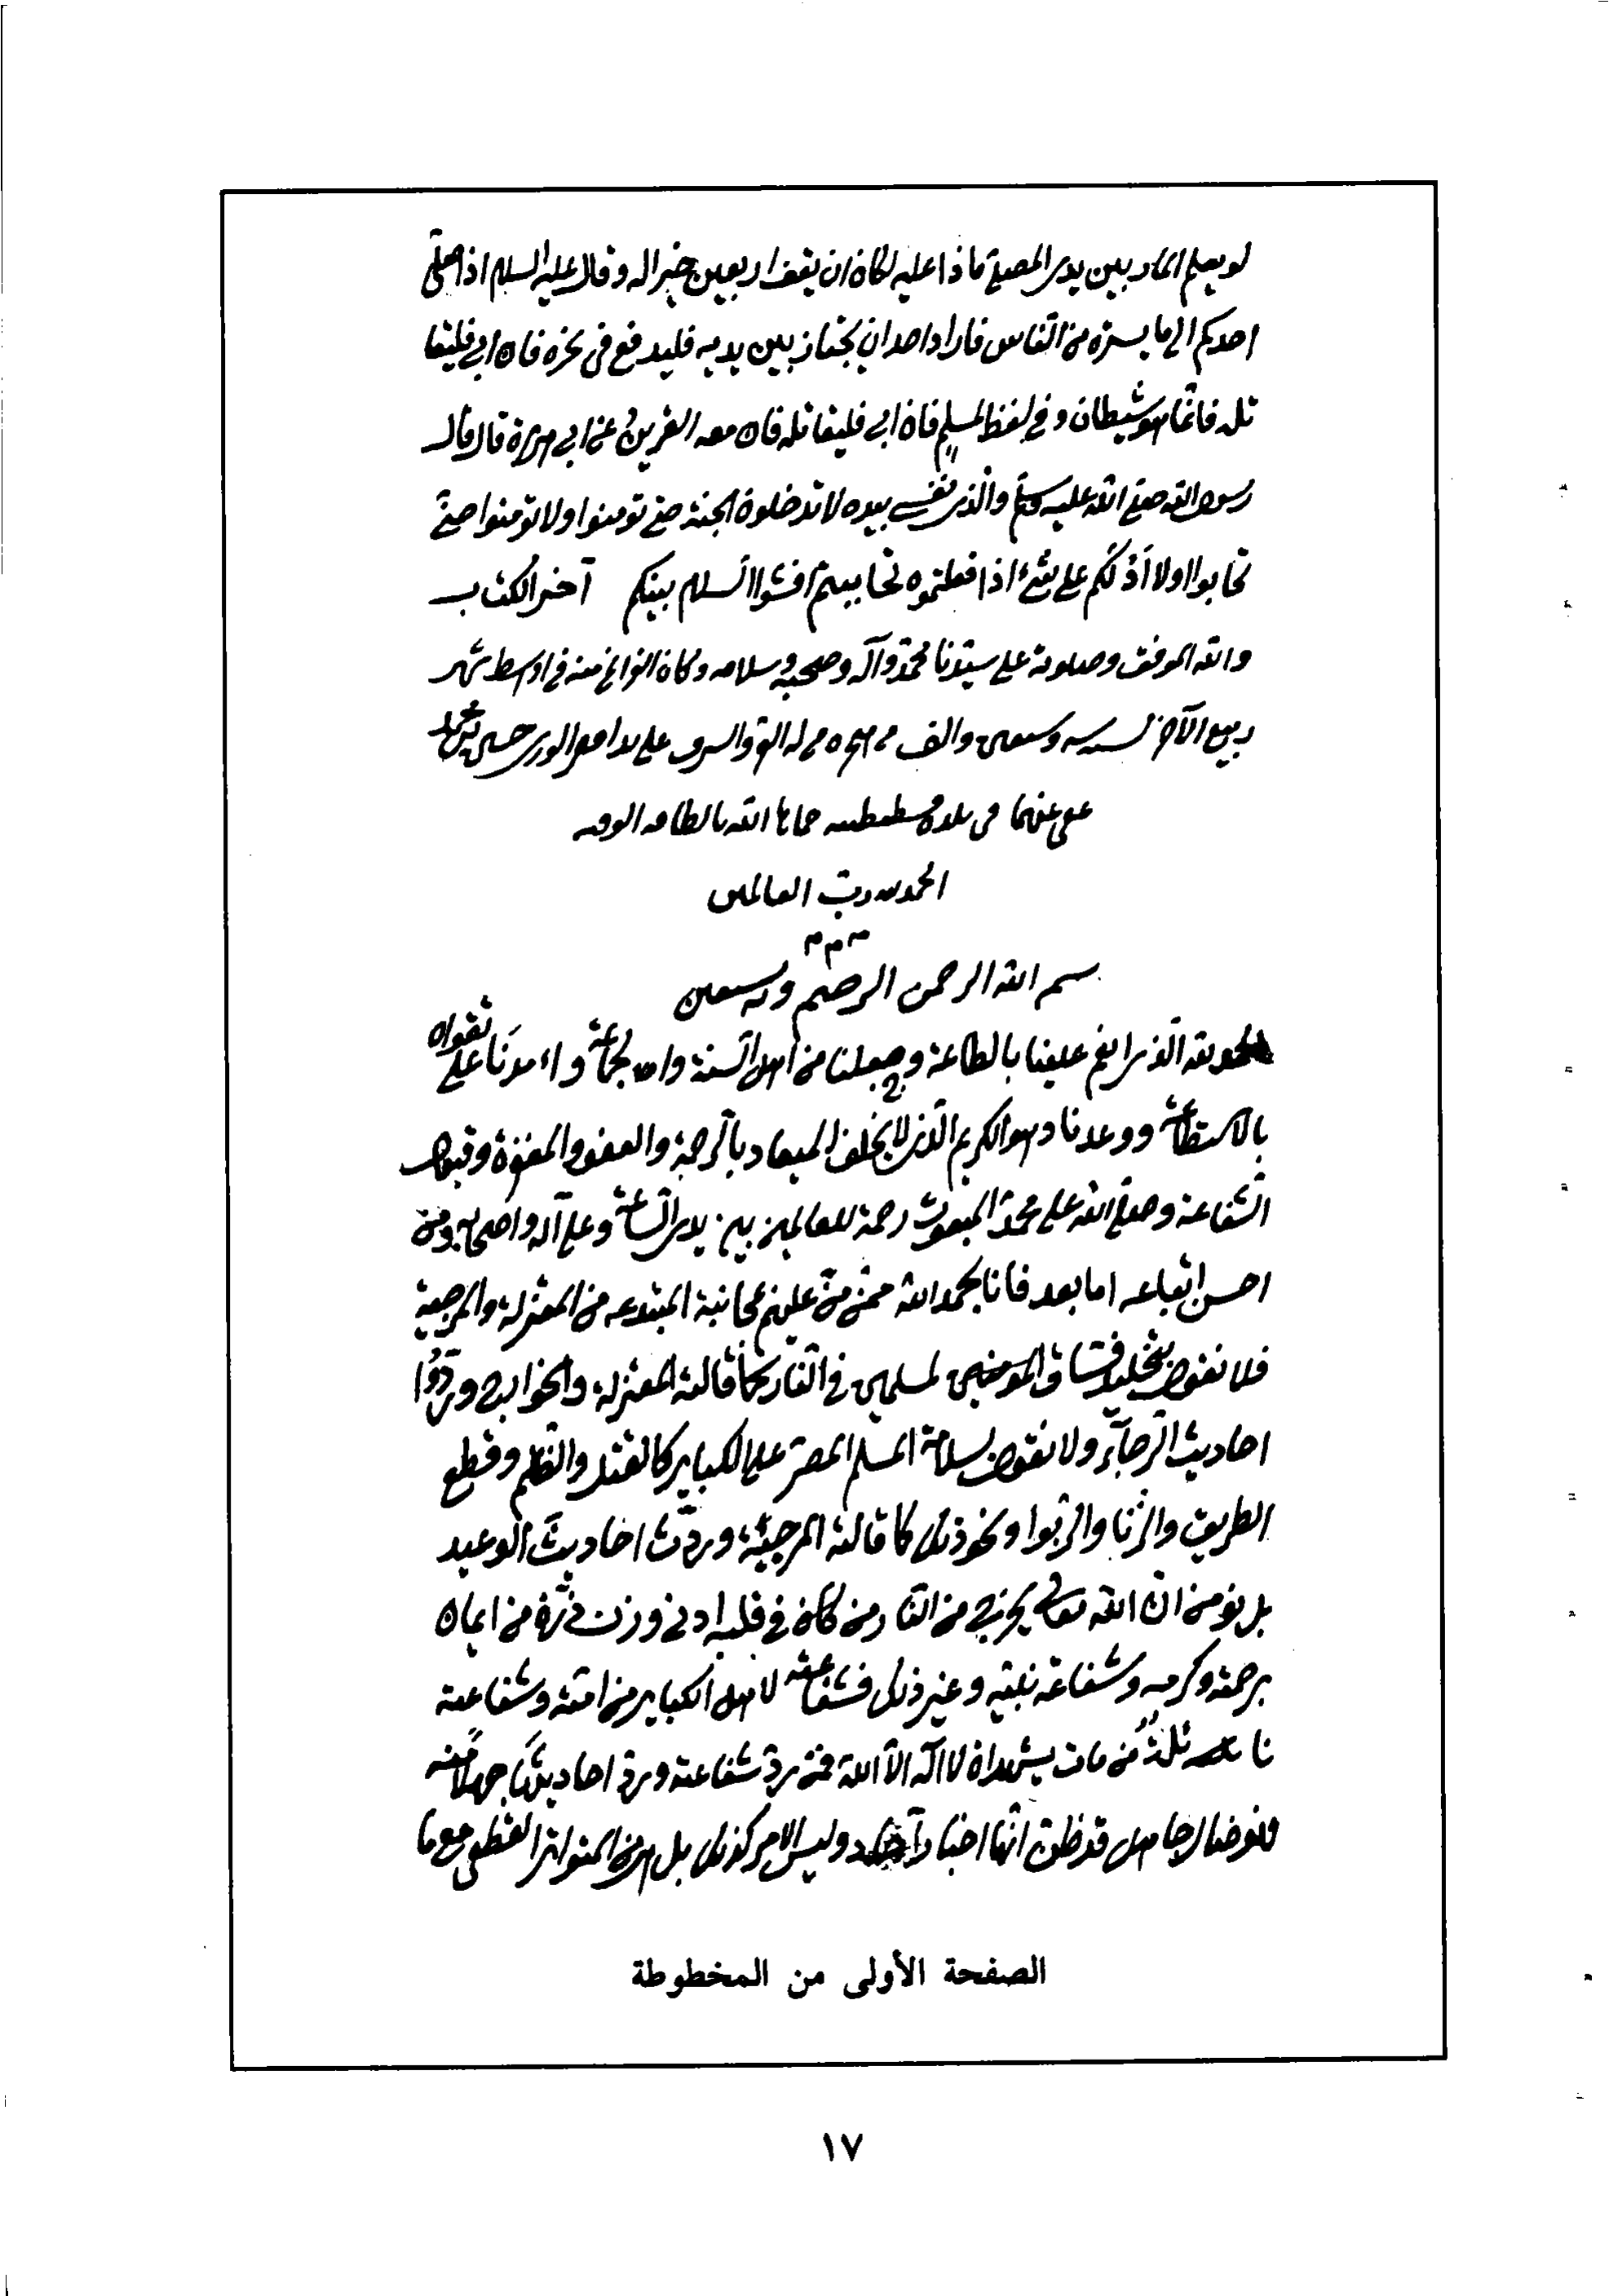 لو يعلم المار بين يدى المصلى ماذا عليه لكان ان يقف اربعين خير اله وقال عليه السلم اذا صلى
احدكم الى ما يستره من الناس فاراد احد ان يجتاز بين يديه فليدفع فى نحره فان ابى فليقا
تله فانما هو شيطان و فى لفظ لمسلم فان ابى فليقاتله فان معه القرين عن ابى هريرة قال قال
رسول الله صلى الله عليه وسلم والذى نفسى بيده لا تدخلون الجنة حتى تومنوا ولا تومنوا حتى
تحابوا اولا ادلكم على شئ اذا فعلتموه تحاببتم افشوا السلام بينكم آخر الكتاب
والله الموفق وصلوته على سيدنا محمد وآله وصحبه وسلامه وكان الفراغ منه فى اوسط شهر
ربيع الآخر لسنة وسبعين والف على يد حسين بن محمد
عفى عنهما فى بلدة قسطنطينيه حماها الله بالطافه
الحمد لله رب العالمين
بسم الله الرحمن الرحيم وبه نستعين
الحمد لله الذى انعم علينا بالطاعة وجعلنا من اهل السنة والجماعة وامرنا على تقواه
بالاستطاعة ووعدنا وهو الكريم الذى لا يخلف الميعاد بالرحمة والعفو والمغفرة وقبول
الشفاعة وصلى الله على محمد المبعوث رحمة للعالمين بين يدى الساعة وعلى آله واصحابه ومن
احسن اتباعه اما بعد فانا بحمد الله ممن من عليهم بمجانبة المبتدعه من المعتزلة والمرجية
فلا نقول بتخليد فساق المومنين لمسلمين فى النار كما قالته المعتزلة والخوارج وردوا
احاديث الرجآء ولا نقول بسلامة المسلم المصر على الكباير كالقتل والظلم وقطع
الطريق والزنا والربوا ونحو ذلك كما قالته المرجئة وردت احاديث الوعيد
بل نومن ان الله تعالى يخرج من النار من كان فى قلبه ادنى وزن ذرة من ايمان
برحمته وكرمه وشفاعة نبيه وغير ذلك فشفاعته لاهل الكباير من امته وشفاعته
نائلة من مات يشهد ان لا اله الا الله فمن رد شفاعته ورد احاديثها جهلا منه
قد ظن انها اخبار آحاد وليس الامر كذلك بل هى من المتواتر القطعى مع ما
الصفحة الأولى من المخطوطة
١٧